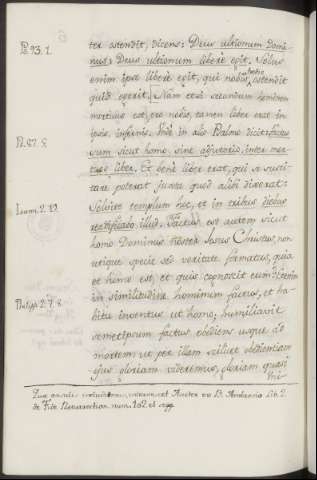 Ps. 93. 1.
ter ostendit, dicens: Deus ultionum Domi-
nus: Deus ultionum liberè egit. Solus
enim ipse liberè egit, qui nobis hodie ostendit
quid egerit. Nam etsi secundum hominem
mortuus est pro nobis, tamen liber erat in
ipsis infernis. Unde in alio Psalmo dicit: factus
Ps. 87. 5.
sum sicut homo sine adjutorio, inter mor-
tuos liber. Et benè liber erat, qui se susci-
tare poterat juxta quod alibi dixerat:
Joann. 2. 19.
Solvite templum hoc, et in tribus diebus
reædificabo illud. Factus est autem sicut
homo Dominus noster Jesus Christus, non
utique specie sed veritate formatus, quia
et homo est, et quis cognoscit eum? Denique
Philipp. 2. 7. 8.
in similitudine hominum factus, et ha-
bitu inventus ut homo, humiliavit
semetipsum factus obediens usque ad
mortem ut per illam scilicet obedientiam
ejus gloriam videremus, gloriam quasi
Uni-
de Fide Resurrection. num. 102 et seqq.